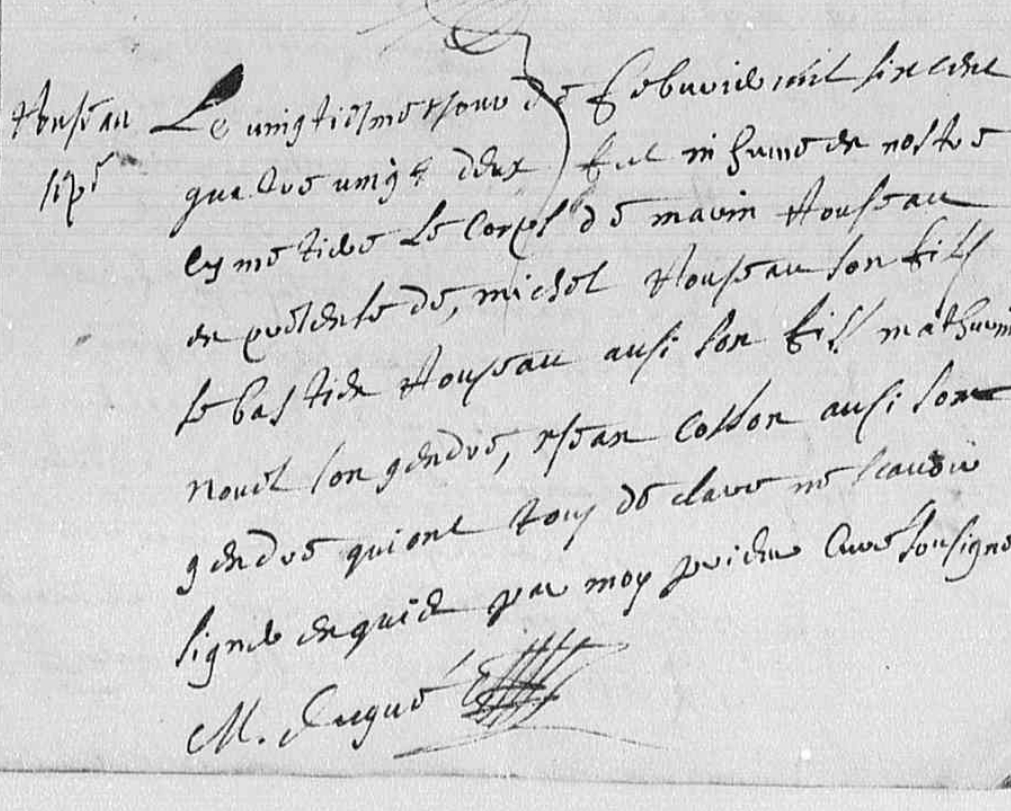 Rouseau
sep^r
Le vingtiesme jour de febvrier mil six cent
quatre vingt deux fut inhume en nostre
cymetiere Le Corps de marin Rouseau
en presense de, michel Rouseau son fils
sebastien Rouseau ausi son fils mathurin
nouel son gendre, jean cosson ausi son
gendre qui ont tous declare ne scavoir
signer enquis par moy prieur Curé sousigné
M.